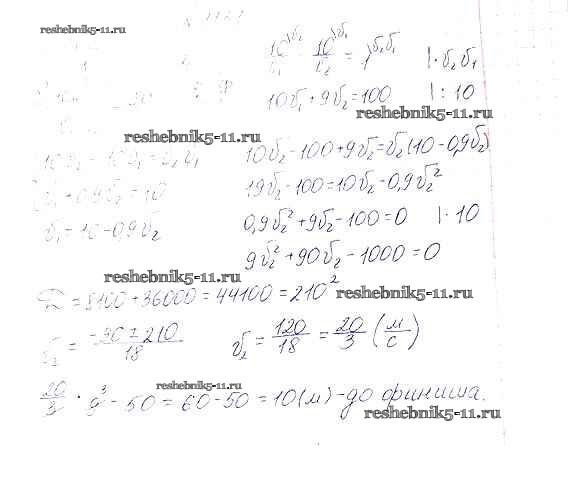 reshebnik5-11.ru
10/v₁ - 10/v₂ = 1 | · v₂v₁
10v₁ + 9v₂ = 100 | : 10
reshebnik5-11.ru
reshebnik5-11.ru
10v₂ - 10v₁ = v₂v₁ 10v₂ - 100 + 9v₂ = v₂(10 - 0,9v₂)
v₁ + 0,9v₂ = 10 19v₂ - 100 = 10v₂ - 0,9v₂²
v₁ = 10 - 0,9v₂ 0,9v₂² + 9v₂ - 100 = 0 | · 10
9v₂² + 90v₂ - 1000 = 0
reshebnik5-11.ru
Д = 8100 + 36000 = 44100 = 210²
reshebnik5-11.ru
v₂ = (-90 ± 210)/18 v₂ = 120/18 = 20/3 (м/с)
reshebnik5-11.ru
20/3 · 9³ - 50 = 60 - 50 = 10 (м) - до финиша.
reshebnik5-11.ru